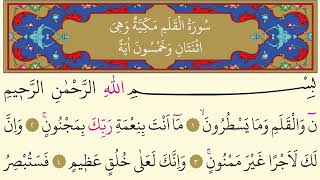 سُورَةُ الْقَلَمِ مَكِّيَّةٌ وَهِيَ
اثْنَتَانِ وَخَمْسُونَ اٰيَةً
بِسْمِ اللّٰهِ الرَّحْمٰنِ الرَّحِيمِ
نٓ وَالْقَلَمِ وَمَا يَسْطُرُونَۙ ﴿١﴾ مَٓا اَنْتَ بِنِعْمَةِ رَبِّكَ بِمَجْنُونٍۚ ﴿٢﴾ وَاِنَّ
لَكَ لَاَجْرًا غَيْرَ مَمْنُونٍۚ ﴿٣﴾ وَاِنَّكَ لَعَلٰى خُلُقٍ عَظِيمٍ ﴿٤﴾ فَسَتُبْصِرُ